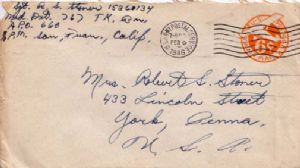 Sgt. R. S. Stoner 15360134
Med. Det. 767 T.K. Bn.
A.P.O. 660
P.M. San, Fran., Calif.
U.S. ARMY POSTAL SERVICE
FEB 9
1945
Mrs. Robert S. Stoner
433 Lincoln Street
York, Penna.
U. S. A.